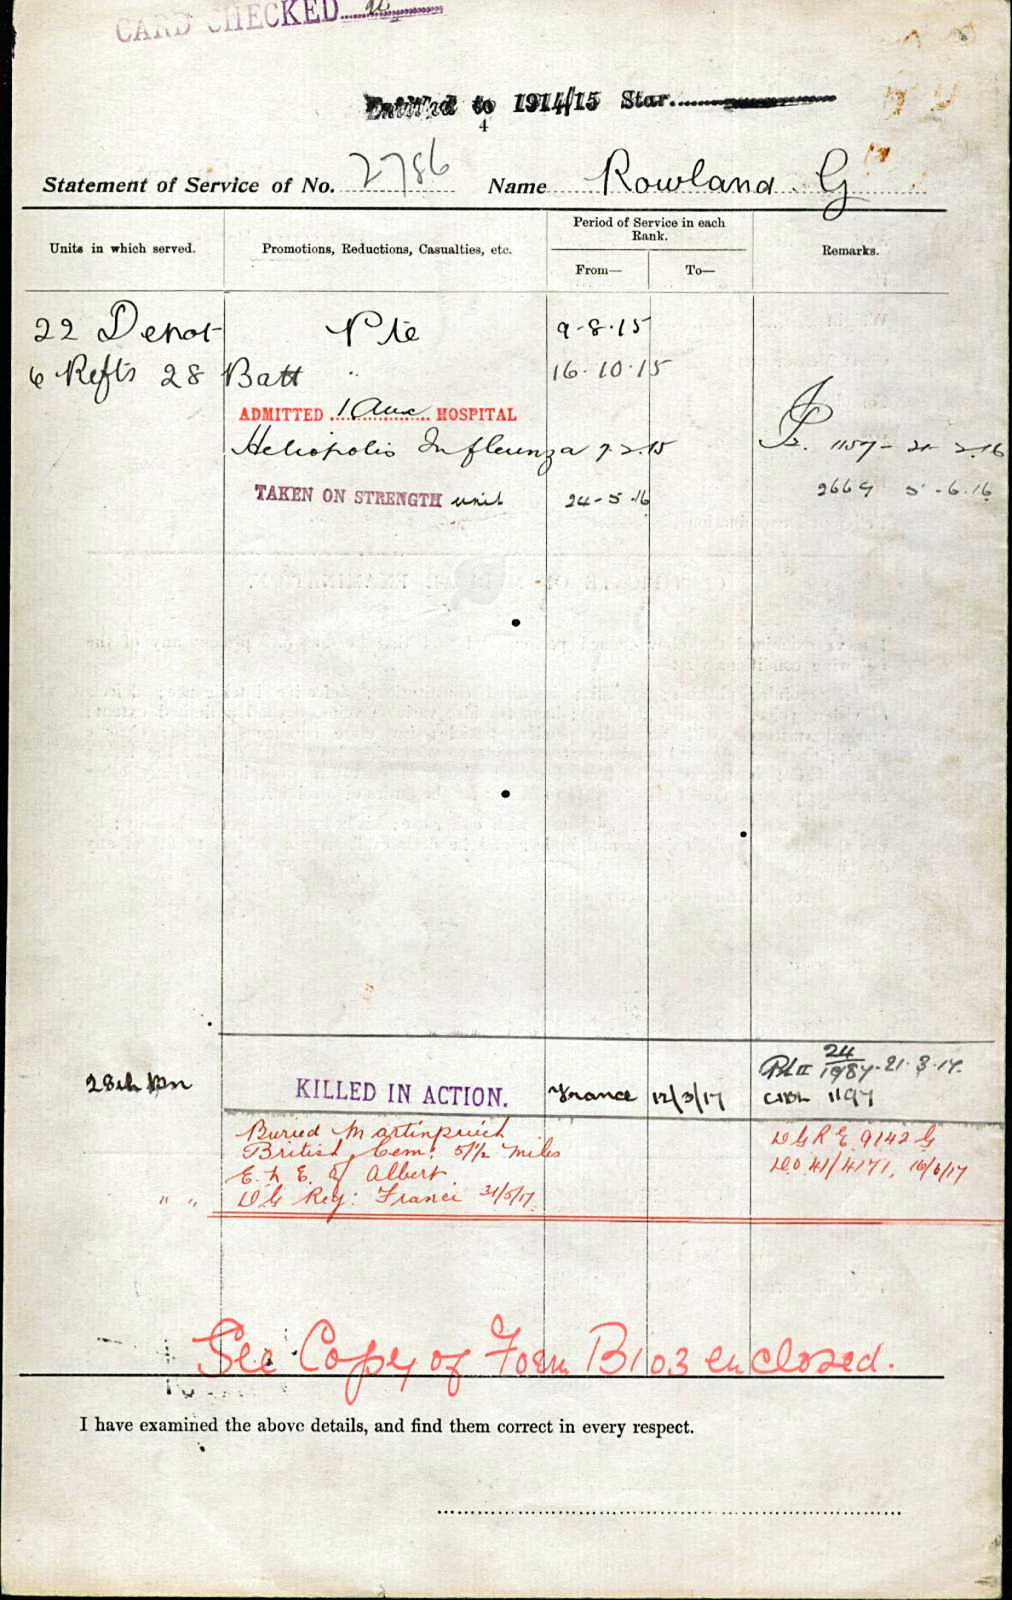 CARD CHECKED
Entitled to 1914/15 Star
4
Statement of Service of No. 2786 Name Rowland G
Units in which served. Promotions, Reductions, Casualties, etc. Period of Service in each Rank. Remarks.
From— To—
22 Depot Pte 9-8-15
6 Refts 28 Batt " 16-10-15
ADMITTED 1 Aux HOSPITAL
Heliopolis Influenza 7.2.15 1157 - 21 2.16
TAKEN ON STRENGTH unit 24-5-16 2669 5-6.16
28th Bn KILLED IN ACTION. France 12/3/17 24/1987-21.3.17.
1197
Buried Martinpuich
British Cem: 5½ miles
E. N. E. of Albert
" " D G Reg: France 31/5/17
D G R E. 9142 G
D.O 41/4171, 16/6/17
See Copy of Form B103 enclosed.
I have examined the above details, and find them correct in every respect.